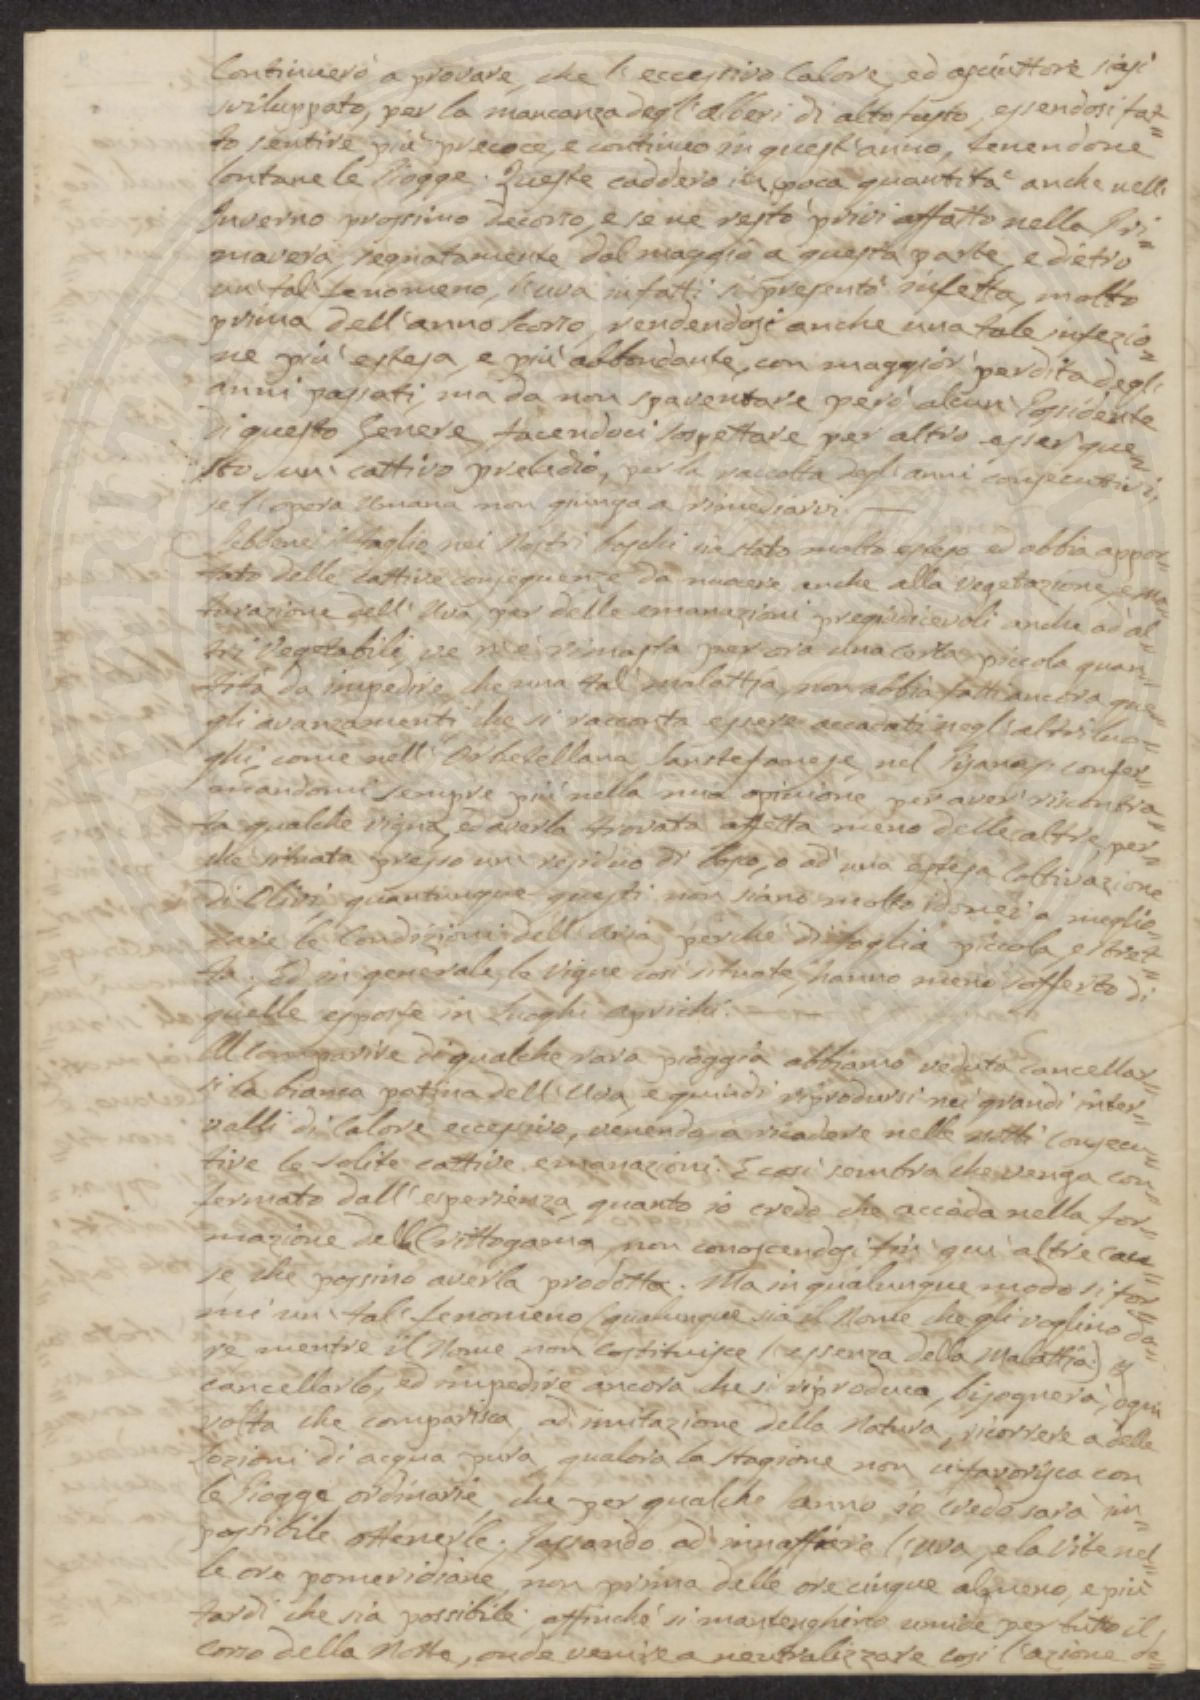 Continuerò a provare, che l'eccessivo Calore, ed asciuttore siasi
sviluppato, per la mancanza degl'alberi di alto fusto, essendosi fat=
to sentire più precoce, e continuo in quest'anno, tenendone
lontane le Piogge. Queste caddero in poca quantità anche nell'
Inverno prossimo decorso, e se ne restò privi affatto nella Pri=
mavera, segnatamente dal maggio a questa parte, e dietro
un tal fenomeno, l'uva infatti si presentò infetta, molto
prima dell'anno scorso, rendendosi anche una tale infezio=
ne più estesa, e più abbondante, con maggior perdita degli
anni passati, ma da non spaventare però alcun Possidente
di questo Genere, facendoci sospettare per altro esser que=
sto un cattivo preludio, per la raccolta degl'anni consecutivi,
se l'opera Umana non giunga a rimediarvi. —
Sebbene il taglio nei Nostri boschi sia stato molto esteso ed abbia appor=
tato delle cattive conseguenze da nuocere anche alla vegetazione, e ma=
turazione dell'Uva, per delle emanazioni pregiudicevoli anche ad al=
tri Vegetabili, ve n'è rimasta per ora una certa piccola quan=
tità da impedire, che una tal malattia, non abbia fatti ancora que=
gli avanzamenti, che si racconta essere accaduti negl'altri luo=
ghi, come nell'Orbetellana, Santostefanese, nel Pisano, confer=
mandomi sempre più nella mia opinione, per aver riscontra=
ta qualche vigna, ed averla trovata affetta meno delle altre, per=
chè situata presso un residuo di bosco, o ad una estesa Coltivazione
di Olivi, quantunque questi non siano molto idonei a miglio=
rare le Condizioni dell'Aria, perchè di foglia piccola, e stret=
ta. Ed in generale, le Vigne così situate, hanno meno sofferto di
quelle esposte in Luoghi aprichi. —
Al comparire di qualche rara pioggia abbiamo veduta cancellar=
si la bianca patina dell'Uva, e quindi riprodursi nei grandi inter=
valli di Calore eccessivo, venendo a ricadere nelle notti consecu=
tive le solite cattive emanazioni. E così sembra che venga con=
fermato dall'esperienza, quanto io credo che accada nella for=
mazione della Crittogama, non conoscendosi fin qui altre cau=
se che possino averla prodotta. Ma in qualunque modo si for=
mi un tal fenomeno (qualunque sia il Nome che gli voglino da=
re mentre il Nome non costituisce l'essenza della Malattia) per
cancellarlo, ed impedire ancora che si riproduca, bisognerà, ogni
volta che comparisca, ad imitazione della Natura, ricorrere a delle
Lozioni di acqua pura, qualora la stagione non ci favorisca con
le Piogge ordinarie, che per qualche anno io credo sarà im=
possibile ottenerle. Passando ad innaffiare l'uva, e la Vite nel=
le ore pomeridiane, non prima delle ore cinque almeno, e più
tardi che sia possibile, affinchè si mantenghino umide per tutto il
corso della Notte, onde venire a neutralizzare così l'azione de=